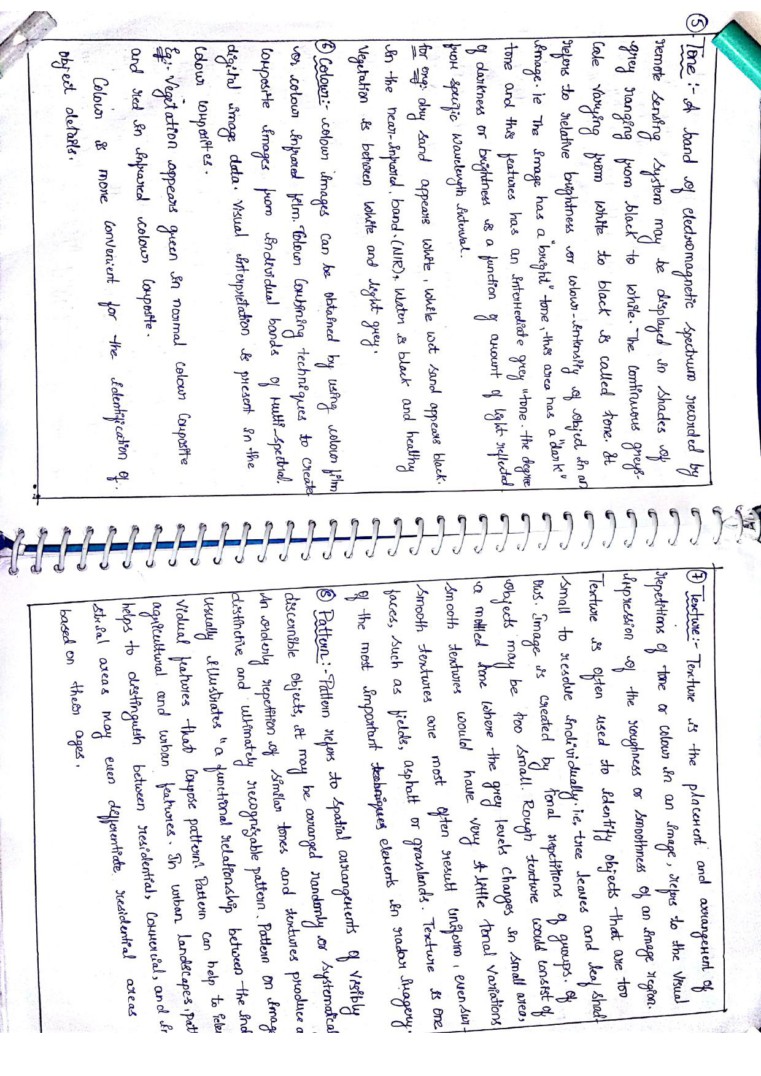 ⑤ Tone :- A band of electromagnetic spectrum recorded by
remote sensing system may be displayed in shades of
grey ranging from black to white. The continuous greys-
cale varying from white to black is called tone. It
refers to relative brightness or colour-intensity of object in an
image. ie The image has a "bright" tone, this area has a "dark"
tone and this features has an intermediate grey "tone. the degree
of darkness or brightness is a function of amount of light reflected
from specific wavelength interval.
for eng: dry sand appears white, while wet sand appears black.
in the near-infrared. band. (NIR), Water is black and healthy
Vegetation is between white and light grey.
⑥ Colour:- colour images can be obtained by using colour film
or, colour infrared film. Colour Combining techniques to create
composite images from individual bands of multi-spectral.
digital image data. Visual interpretation is present in the
colour composites.
Eg:- Vegetation appears green in normal colour Composite
and red in infrared colour Composite.
Colour is more convenient for the identification of.
object details.
⑦ Texture:- Texture is the placement and arrangement of
repetitions of tone or colour in an image, refers to the visual
impression of the roughness or smoothness of an image region.
Texture is often used to identify objects that are too
small to resolve individually. i.e, tree leaves and leaf shad-
ows. image is created by tonal repetitions of groups. of
objects may be too small. Rough texture would consist of
a mottled tone where the grey levels changes in small area,
smooth textures would have very little tonal variations
smooth textures are most often result uniform, even sur-
faces, such as fields, asphalt or grasslands. Texture is one
of the most important techniques elements in radar imagery.
⑧ Pattern:- Pattern refers to spatial arrangements of visibly
discernible objects, it may be arranged randomly or systematical
An orderly repetition of similar tones and textures produce a
distinctive and ultimately recognizable pattern. Pattern on imag
usually illustrates "a functional relationship between the ind
vidual features that compose pattern! Pattern can help to
agricultural and urban features. In urban landscapes,
helps to distinguish between residential, Commercial, and in
strial areas may even differentiate residential areas
based on their ages.